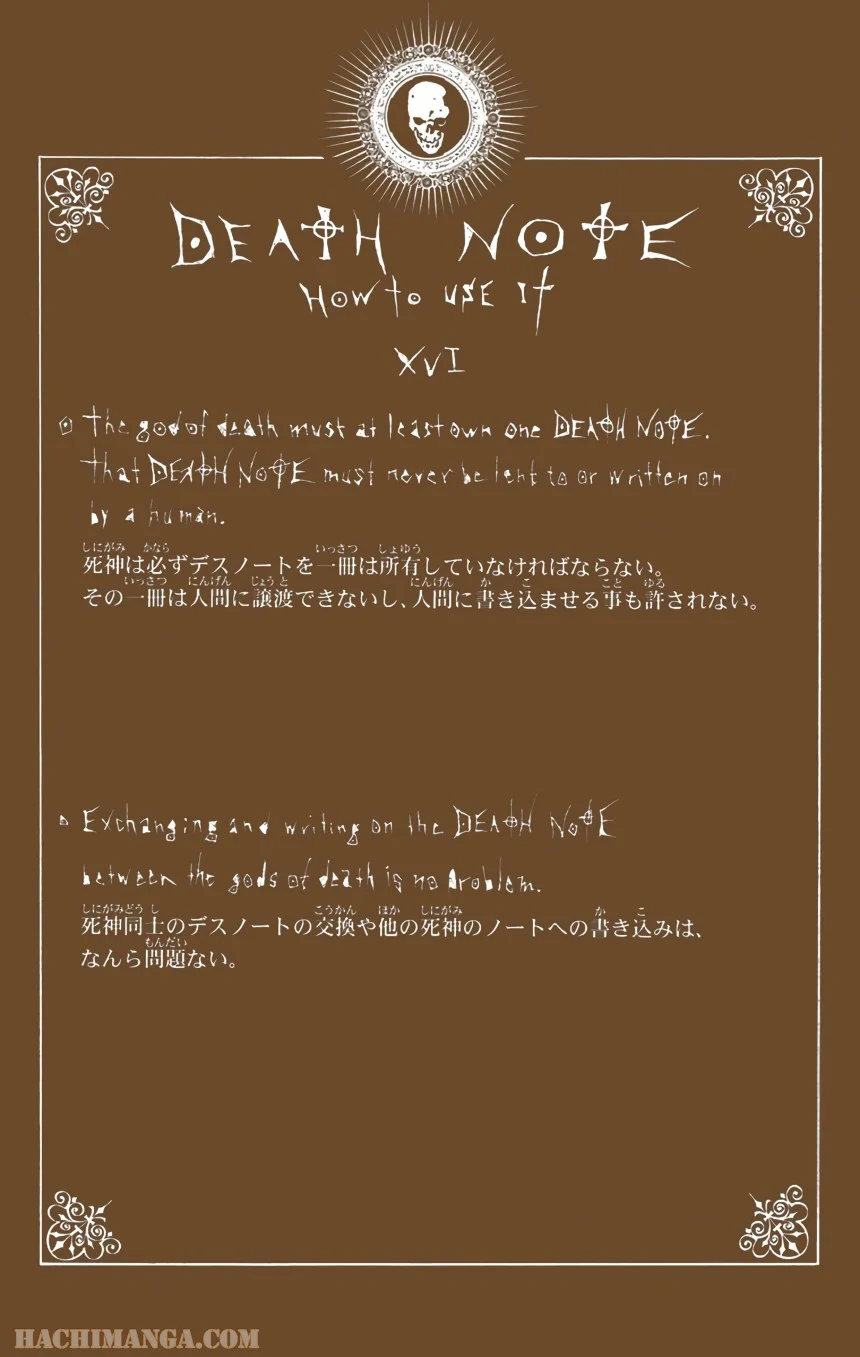 DEATH NOTE
How to use it
XVI
The god of death must at least own one DEATH NOTE.
That DEATH NOTE must never be lent to or written on
by a human.
死神は必ずデスノートを一冊は所有していなければならない。
その一冊は人間に譲渡できないし、人間に書き込ませる事も許されない。
Exchanging and writing on the DEATH NOTE
between the gods of death is no problem.
死神同士のデスノートの交換や他の死神のノートへの書き込みは、
なんら問題ない。
HACHIMANGA.COM